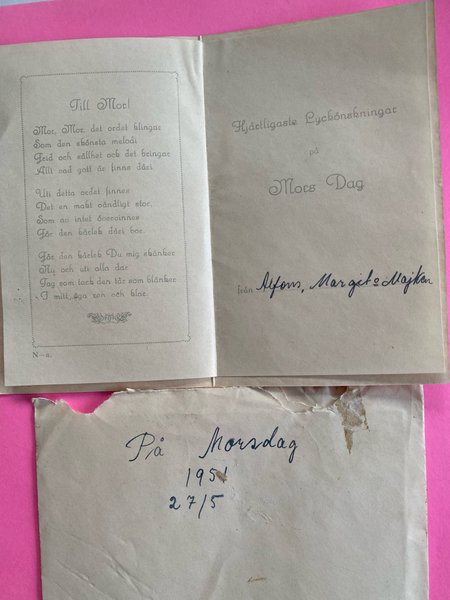 Till Mor!
Mor, Mor, det ordet klingar
Som den skönsta melodi
Frid och sällhet ock det bringar
Allt vad gott är finns däri
Uti detta ordet finnes
Det en makt oändligt stor,
Som av intet övervinnes
För den kärlek däri bor.
För den kärlek Du mig skänker
Ny och uti alla dar
Jag som tack den tår som blänker
I mitt öga ren och klar.
N–a.
Hjärtligaste Lyckönskningar
på
Mors Dag
från Alfons, Margit o Majken
På Morsdag
1951
27/5